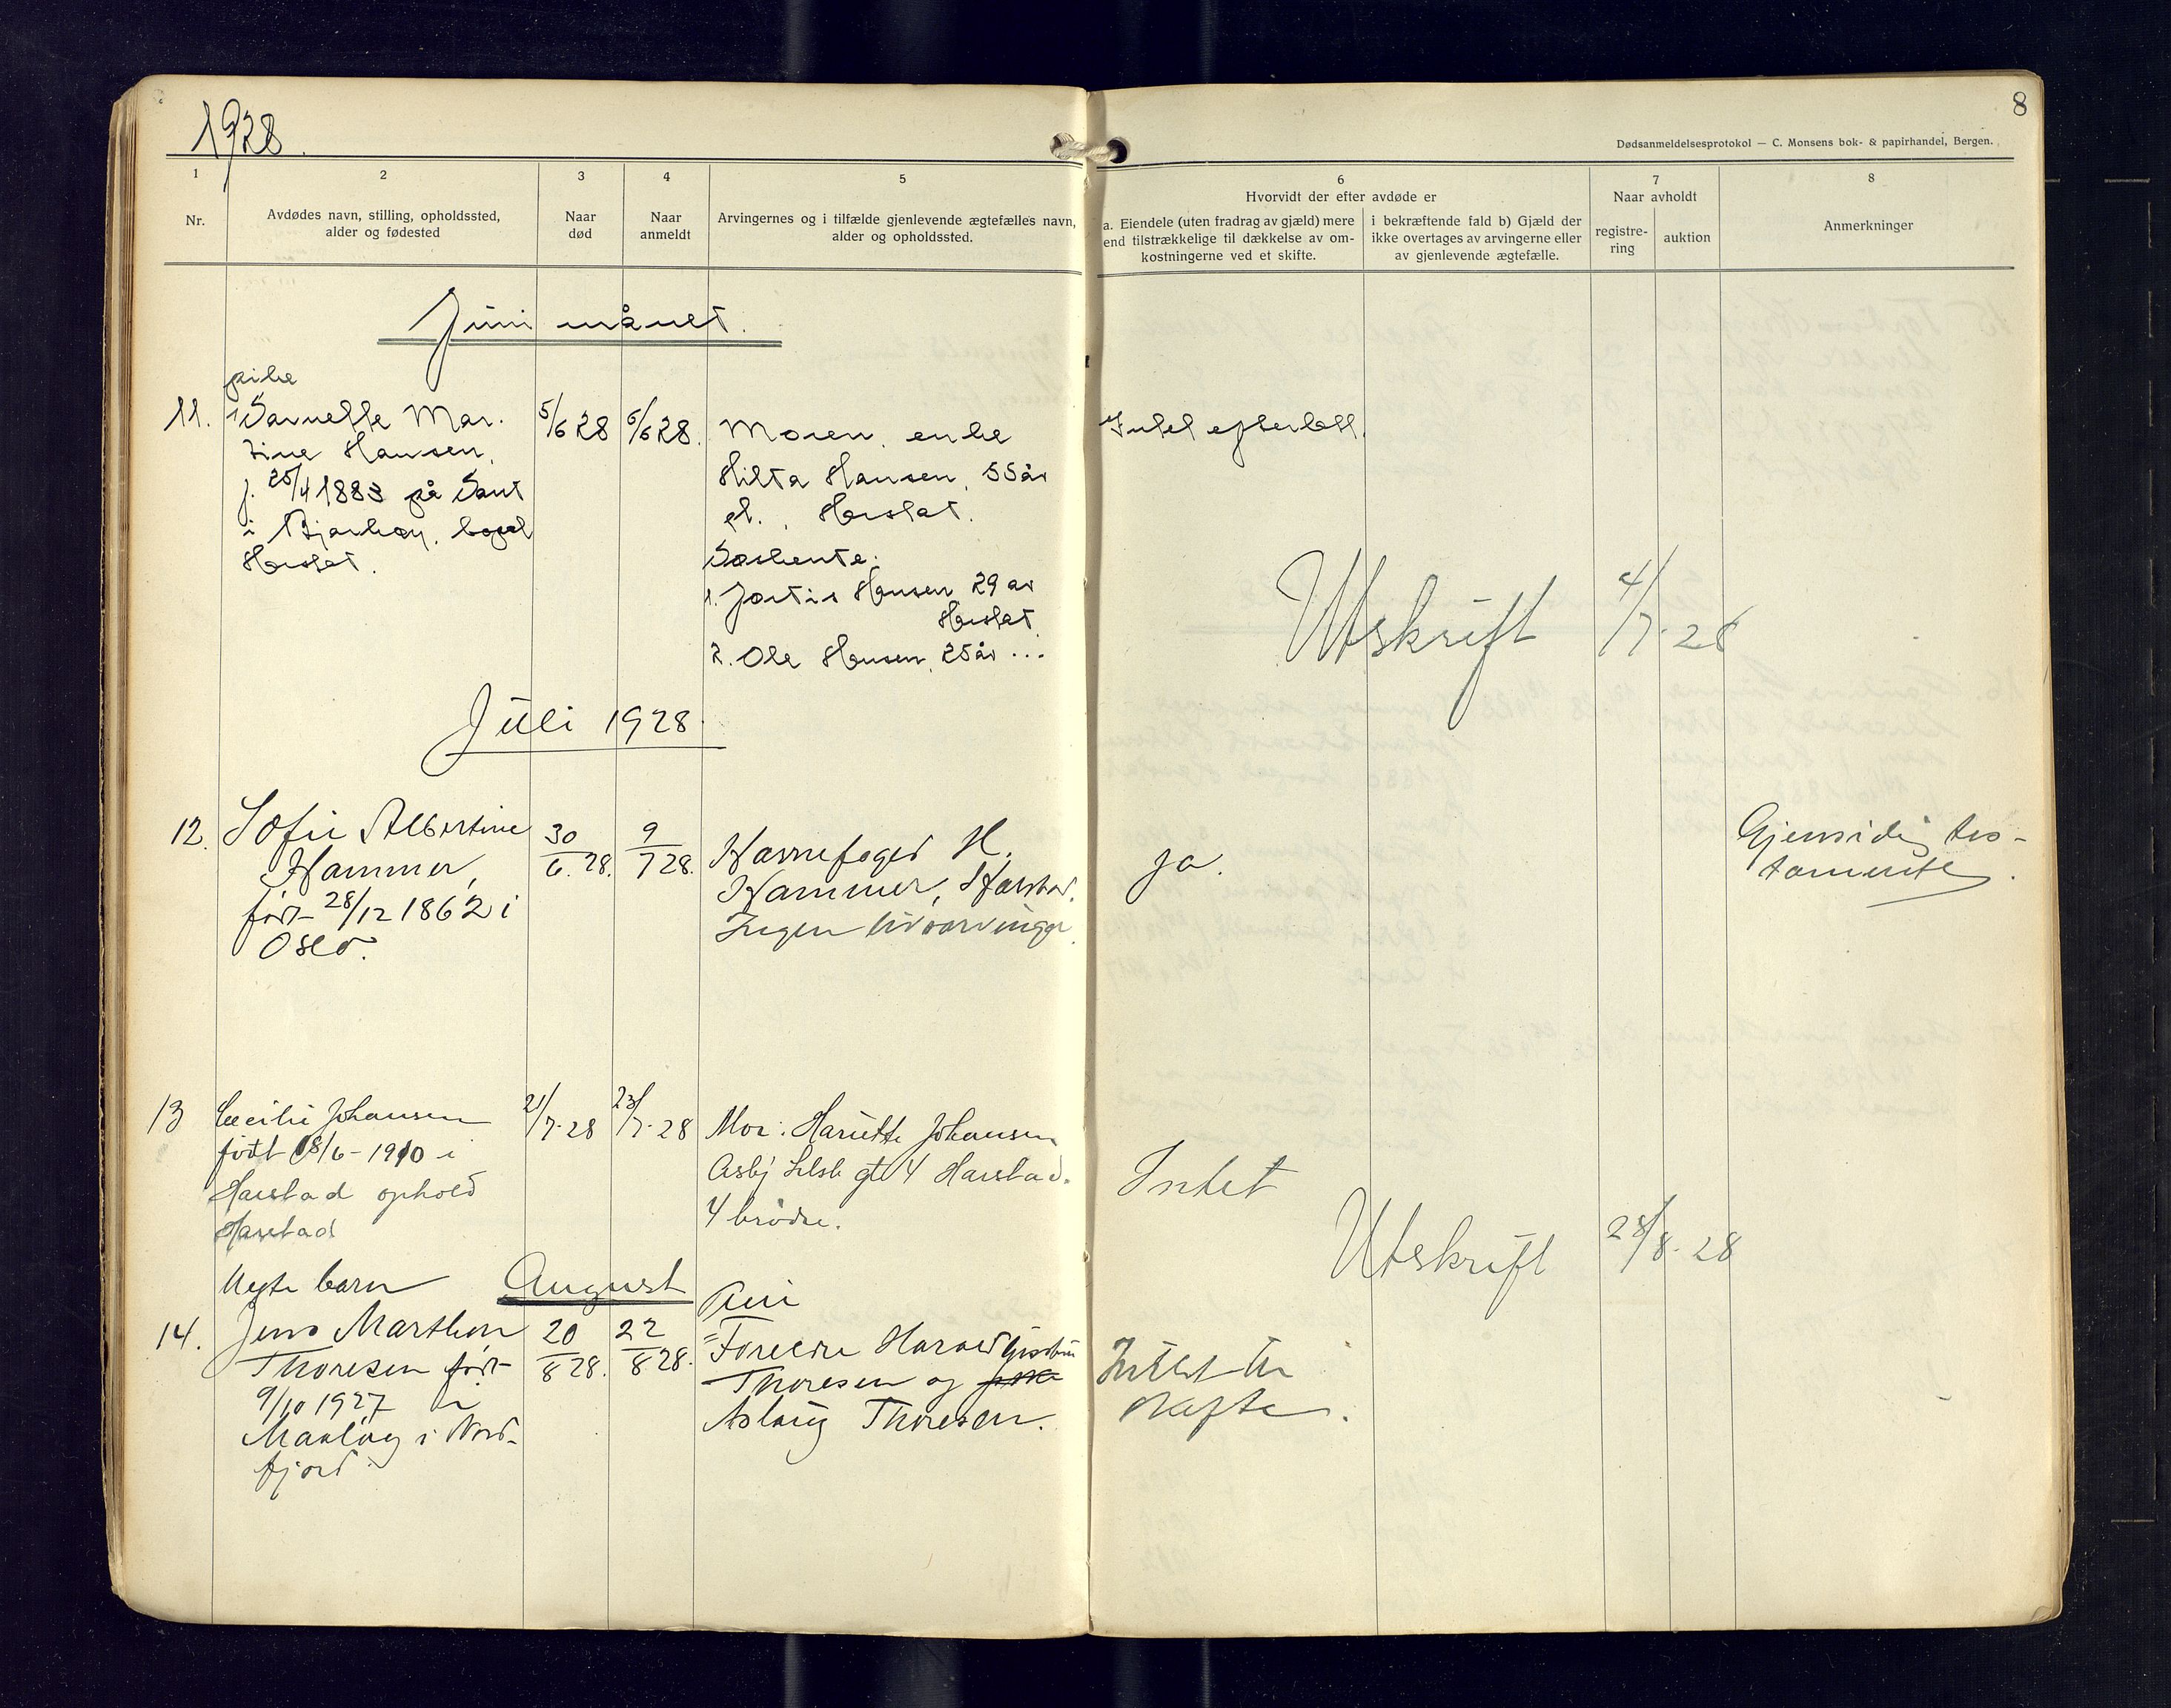 1928.
8
Dødsanmeldelsesprotokol — C. Monsens bok- & papirhandel, Bergen.
1
Nr.
2
Avdødes navn, stilling, opholdssted,
alder og fødested
3
Naar
død
4
Naar
anmeldt
5
Arvingernes og i tilfælde gjenlevende ægtefælles navn,
alder og opholdssted.
6
Hvorvidt der efter avdøde er
a. Eiendele (uten fradrag av gjæld) mere
end tilstrækkelige til dækkelse av om-
kostningerne ved et skifte.
i bekræftende fald b) Gjæld der
ikke overtages av arvingerne eller
av gjenlevende ægtefælle.
7
Naar avholdt
registre-
ring
auktion
8
Anmerkninger
Juni månet.
pike
11.
Mar-
tine Hansen,
f. 25/4 1883 på
i Bjarkøy,
5/6 28
6/6 28.
Moren, enke
Hilda Hansen, 55 år
Søskende:
1. Hansen 29 år
2. Ole Hansen, 25 år ...
Intet efterlatt.
Utskrift 4/7-28
Juli 1928.
12.
Sofie Albertine
Hammer,
født 28/12 1862 i
Oslo.
30/6. 28.
9/7 28.
Havnefoged H.
Hammer, Harstad.
Ingen livsarvinger
ja.
Gjensidig tes-
tamente.
13
Cecilie Johansen
født 18/6-1910 i
Harstad ophold
Harstad
21/7-28
23/7-28
Mor: Hariette Johansen
Asbj Selsb gt 4 Harstad.
4 brødre.
Intet
Utskrift 28/8-28
August
Ægte barn
14.
Jens Marthon
Thoresen født
9/10 1927 i
Måløy i Nord-
fjord.
20/8 28.
22/8 28.
Foreldre Harald
Thoresen og
Aslaug Thoresen.
Intet til
skifte.